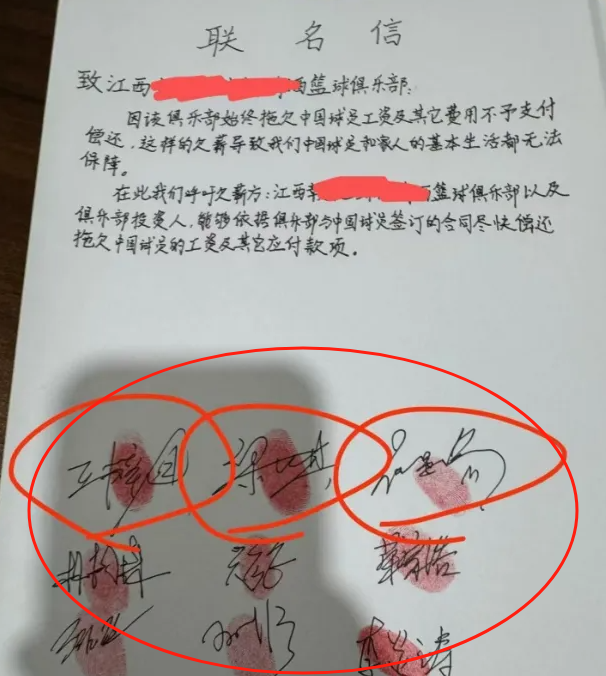 联名信
致江西西篮球俱乐部:
因该俱乐部始终拖欠中国球员工资及其它费用不予支付
偿还,这样的欠薪导致我们中国球员和家人的基本生活都无法
保障。
在此我们呼吁欠薪方:江西西篮球俱乐部以及
俱乐部投资人,能够依据俱乐部与中国球员签订的合同尽快偿还
拖欠中国球员的工资及其它应付款项。